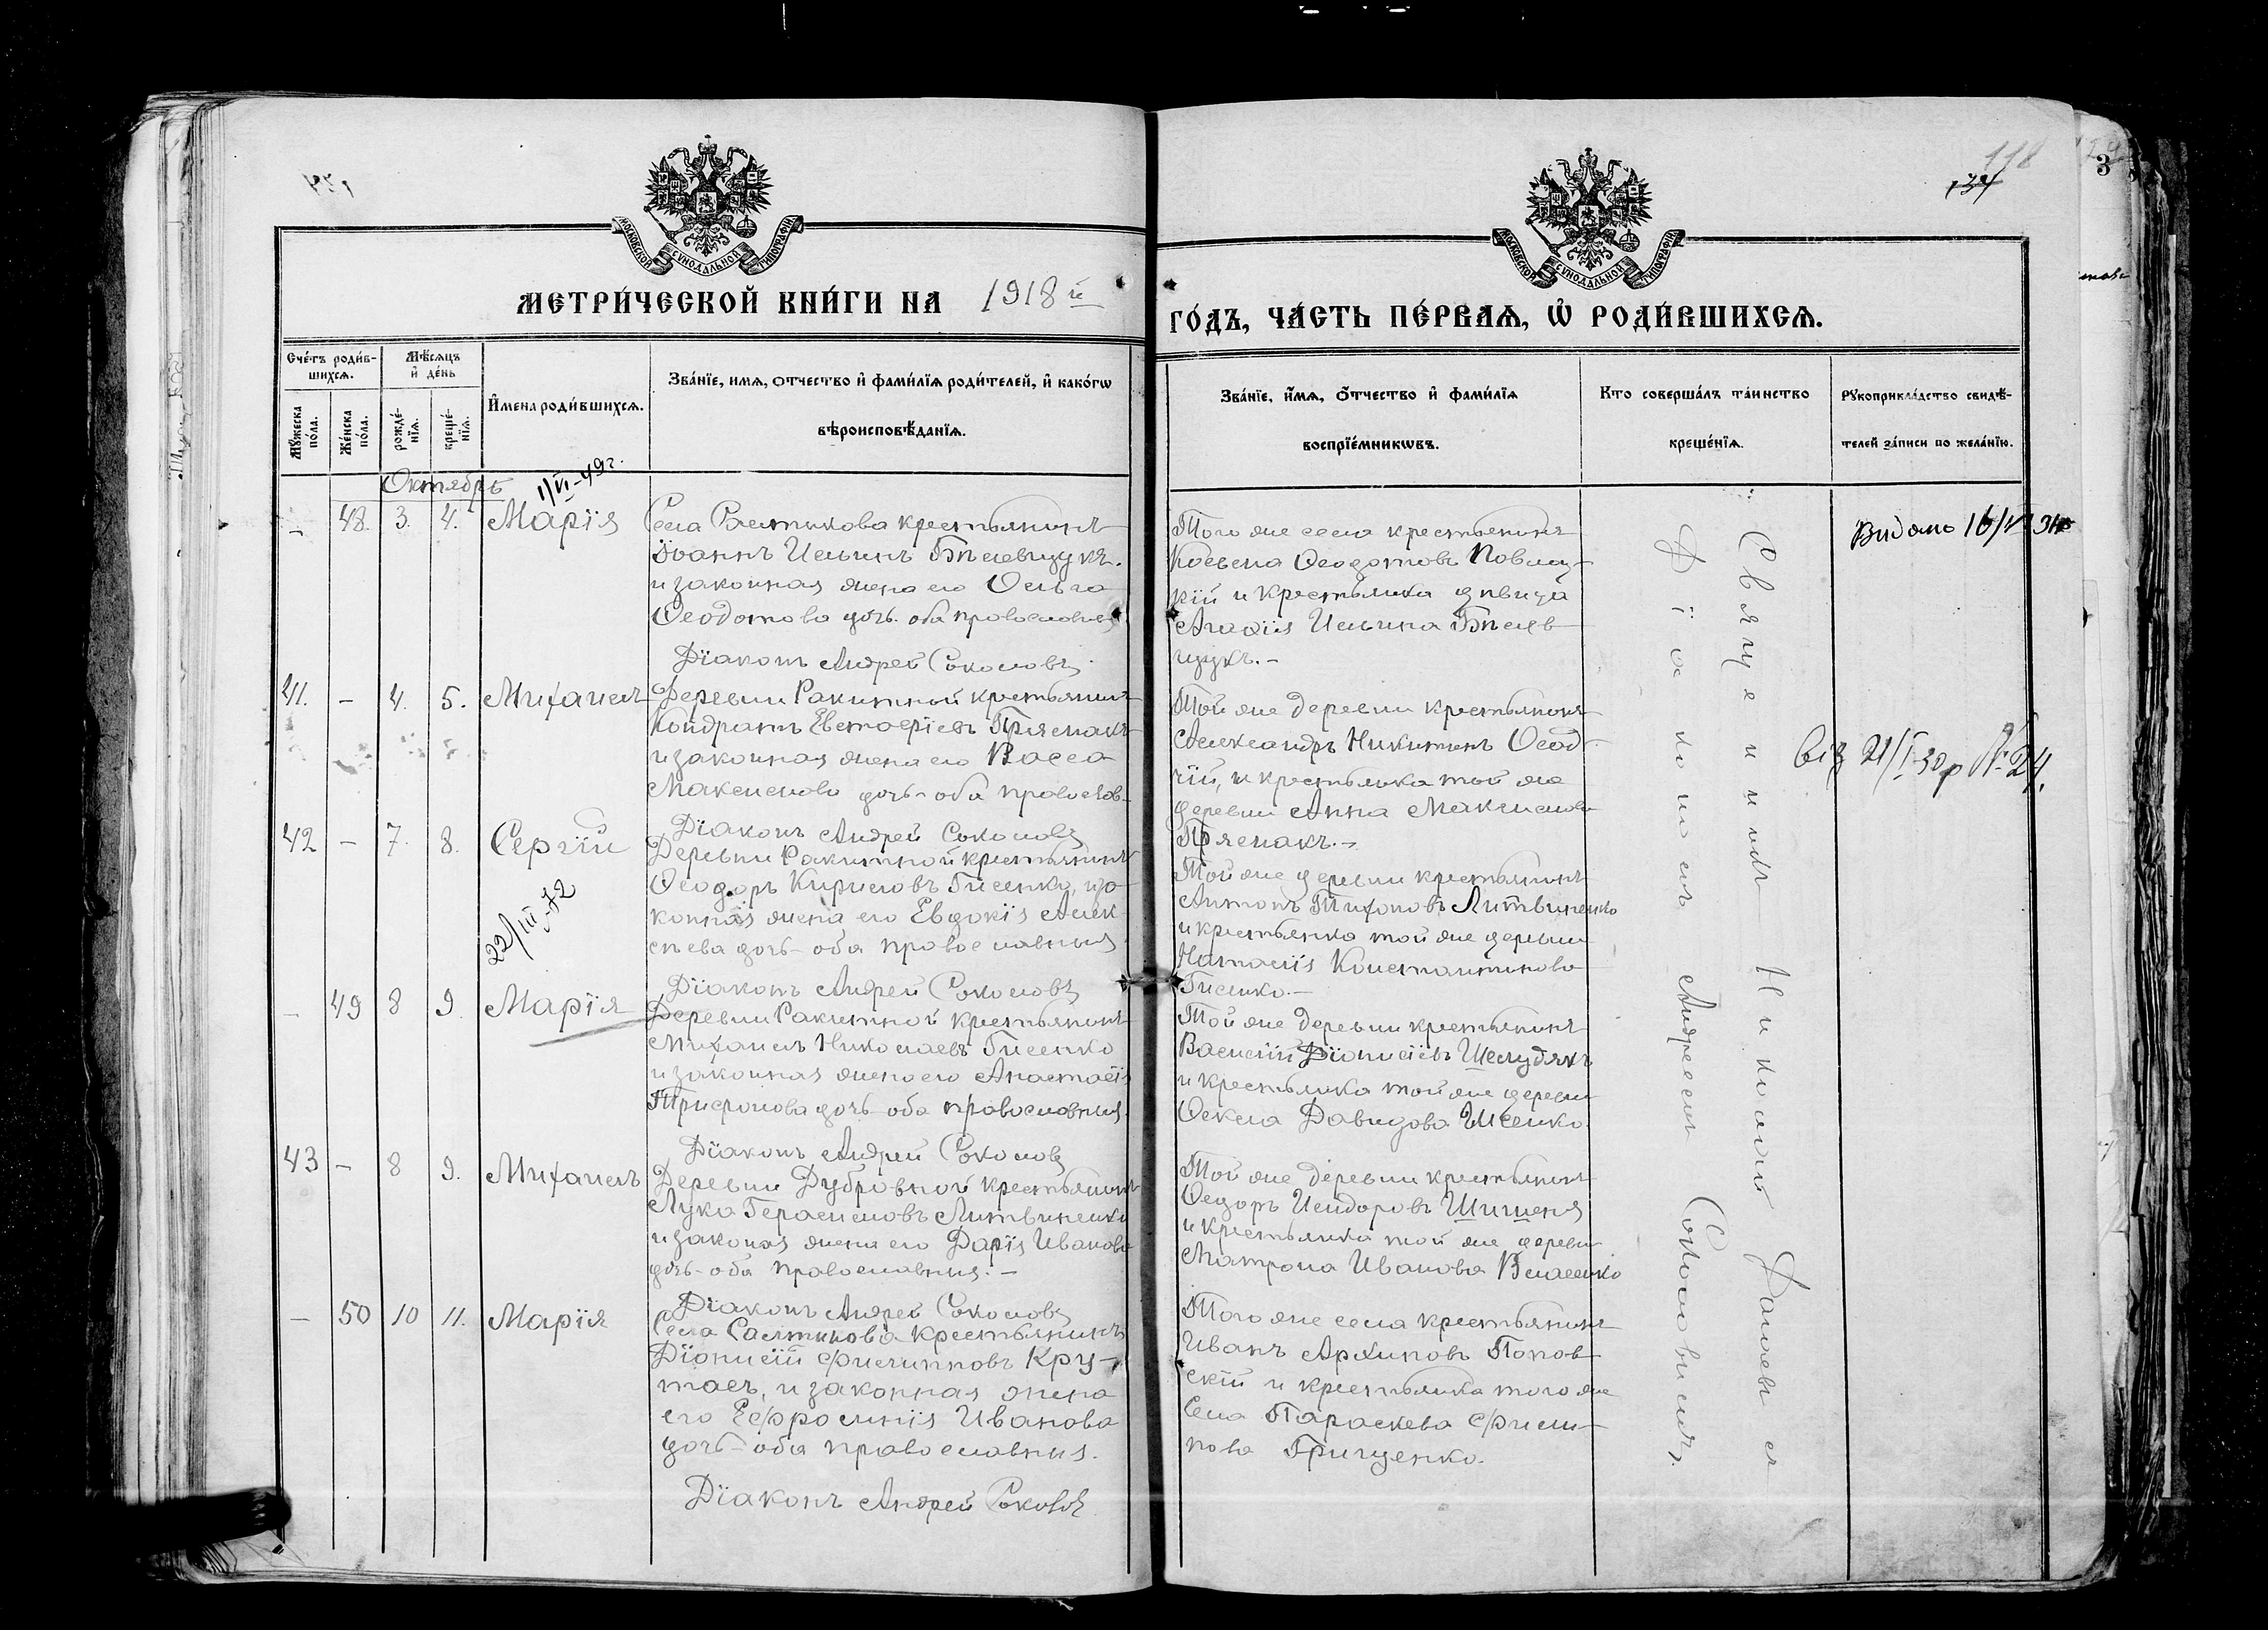 118
134
МОСКОВСКОЙ СѴНОДАЛЬНОЙ ТИПОГРАФІИ
МОСКОВСКОЙ СѴНОДАЛЬНОЙ ТИПОГРАФІИ
МЕТРИ́ЧЕСКОЙ КНИ́ГИ НА 1918й
ГО́ДЪ, ЧА́СТЬ ПЕ́РВАѦ, Ѡ҆ РОДИ́ВШИХСѦ.
Сче́тъ роди́в-
шихсѧ.
Мѣ́сѧцъ
и҆ де́нь
Мꙋ́жеска
по́ла.
Же́нска
по́ла.
рожде́-
нїѧ.
креще́-
нїѧ.
И҆мена роди́вшихсѧ.
Зва́нїе, имѧ, отчество и҆ фами́лїѧ роди́телей, и҆ како́гѡ
вѣроисповѣ́данїѧ.
Зва́нїе, и҆́мѧ, ѻ҆́тчество и҆ фами́лїѧ
воспрїе́мникѡвъ.
Кто соверша́лъ та́инство
креще́нїѧ.
Рꙋкоприкла́дство свидѣ́-
телей за́писи по жела́нїю.
Октябрь
1/VI-49г.
– 48. 3. 4. Марїя
Села Салтыкова крестьянинъ
Іоаннъ Ильинъ Бѣлевцукъ.
и законная жена его Ольга
Ѳеодотова дочь. оба православныя
Дїаконъ Андрей Соколовъ
Того же села крестьянинъ
Козьма Ѳеодотовъ Повлоц-
кїй и крестьянка дѣвица
Агафія Ильина Бѣлев-
цукъ.–
Видано 16/VI 31
41. – 4. 5. Михаилъ
Деревни Ракитной крестьянинъ
Кондратъ Евстафіевъ Прямакъ
и законная жена его Васса
Максимова дочь – оба православ-
Дїаконъ Андрей Соколовъ
Той же деревни крестьянинъ
Александръ Никитинъ Осад-
чїй, и крестьянка той же
деревни Анна Максимова
Прямакъ.–
Від 21/I-30р № 24.
42 – 7. 8. Сергїй
22/III-72
Деревни Ракитной крестьянинъ
Ѳеодоръ Кириловъ Гисенко, и за-
конная жена его Евдокїя Алек-
сѣева дочь – оба православныя
Дїаконъ Андрей Соколовъ
Той же деревни крестьянинъ
Антонъ Тихоновъ Литвиненко
и крестьянка той же деревни
Наталія Константинова
Гисенко.–
– 49 8 9. Марїя
Деревни Ракитной крестьянинъ
Михаилъ Николаевъ Гисенко
и законная жена его Анастасїя
Трифонова дочь – оба православныя.
Дїаконъ Андрей Соколовъ
Той же деревни крестьянинъ
Василїй Дїонисїевъ Шелудякъ
и крестьянка той же деревни
Ѳекла Давидова Гисенко.
43 – 8 9. Михаилъ
Деревни Дубровной крестьянинъ
Лука Герасимовъ Литвиненко
и законая жена его Дарїя Иванова
дочь – оба православныя.–
Дїаконъ Андрей Соколовъ
Той же деревни крестьянинъ
Ѳедоръ Исидоровъ Шишеня
и крестьянка той же деревни
Матрона Иванова Власенко
– 50 10 11. Марїя
Села Салтыкова крестьянинъ
Дїонисїй Филипповъ Кру-
тасъ, и законная жена
его Ефросинїя Иванова
дочь – оба православныя.
Дїаконъ Андрей Соколовъ
Того же села крестьянинъ
Иванъ Архиповъ Попов-
скїй и крестьянка того же
села Параскева Филип-
пова Грищенко.
Священникъ Николай
Дїакономъ Андреемъ Соколовымъ.